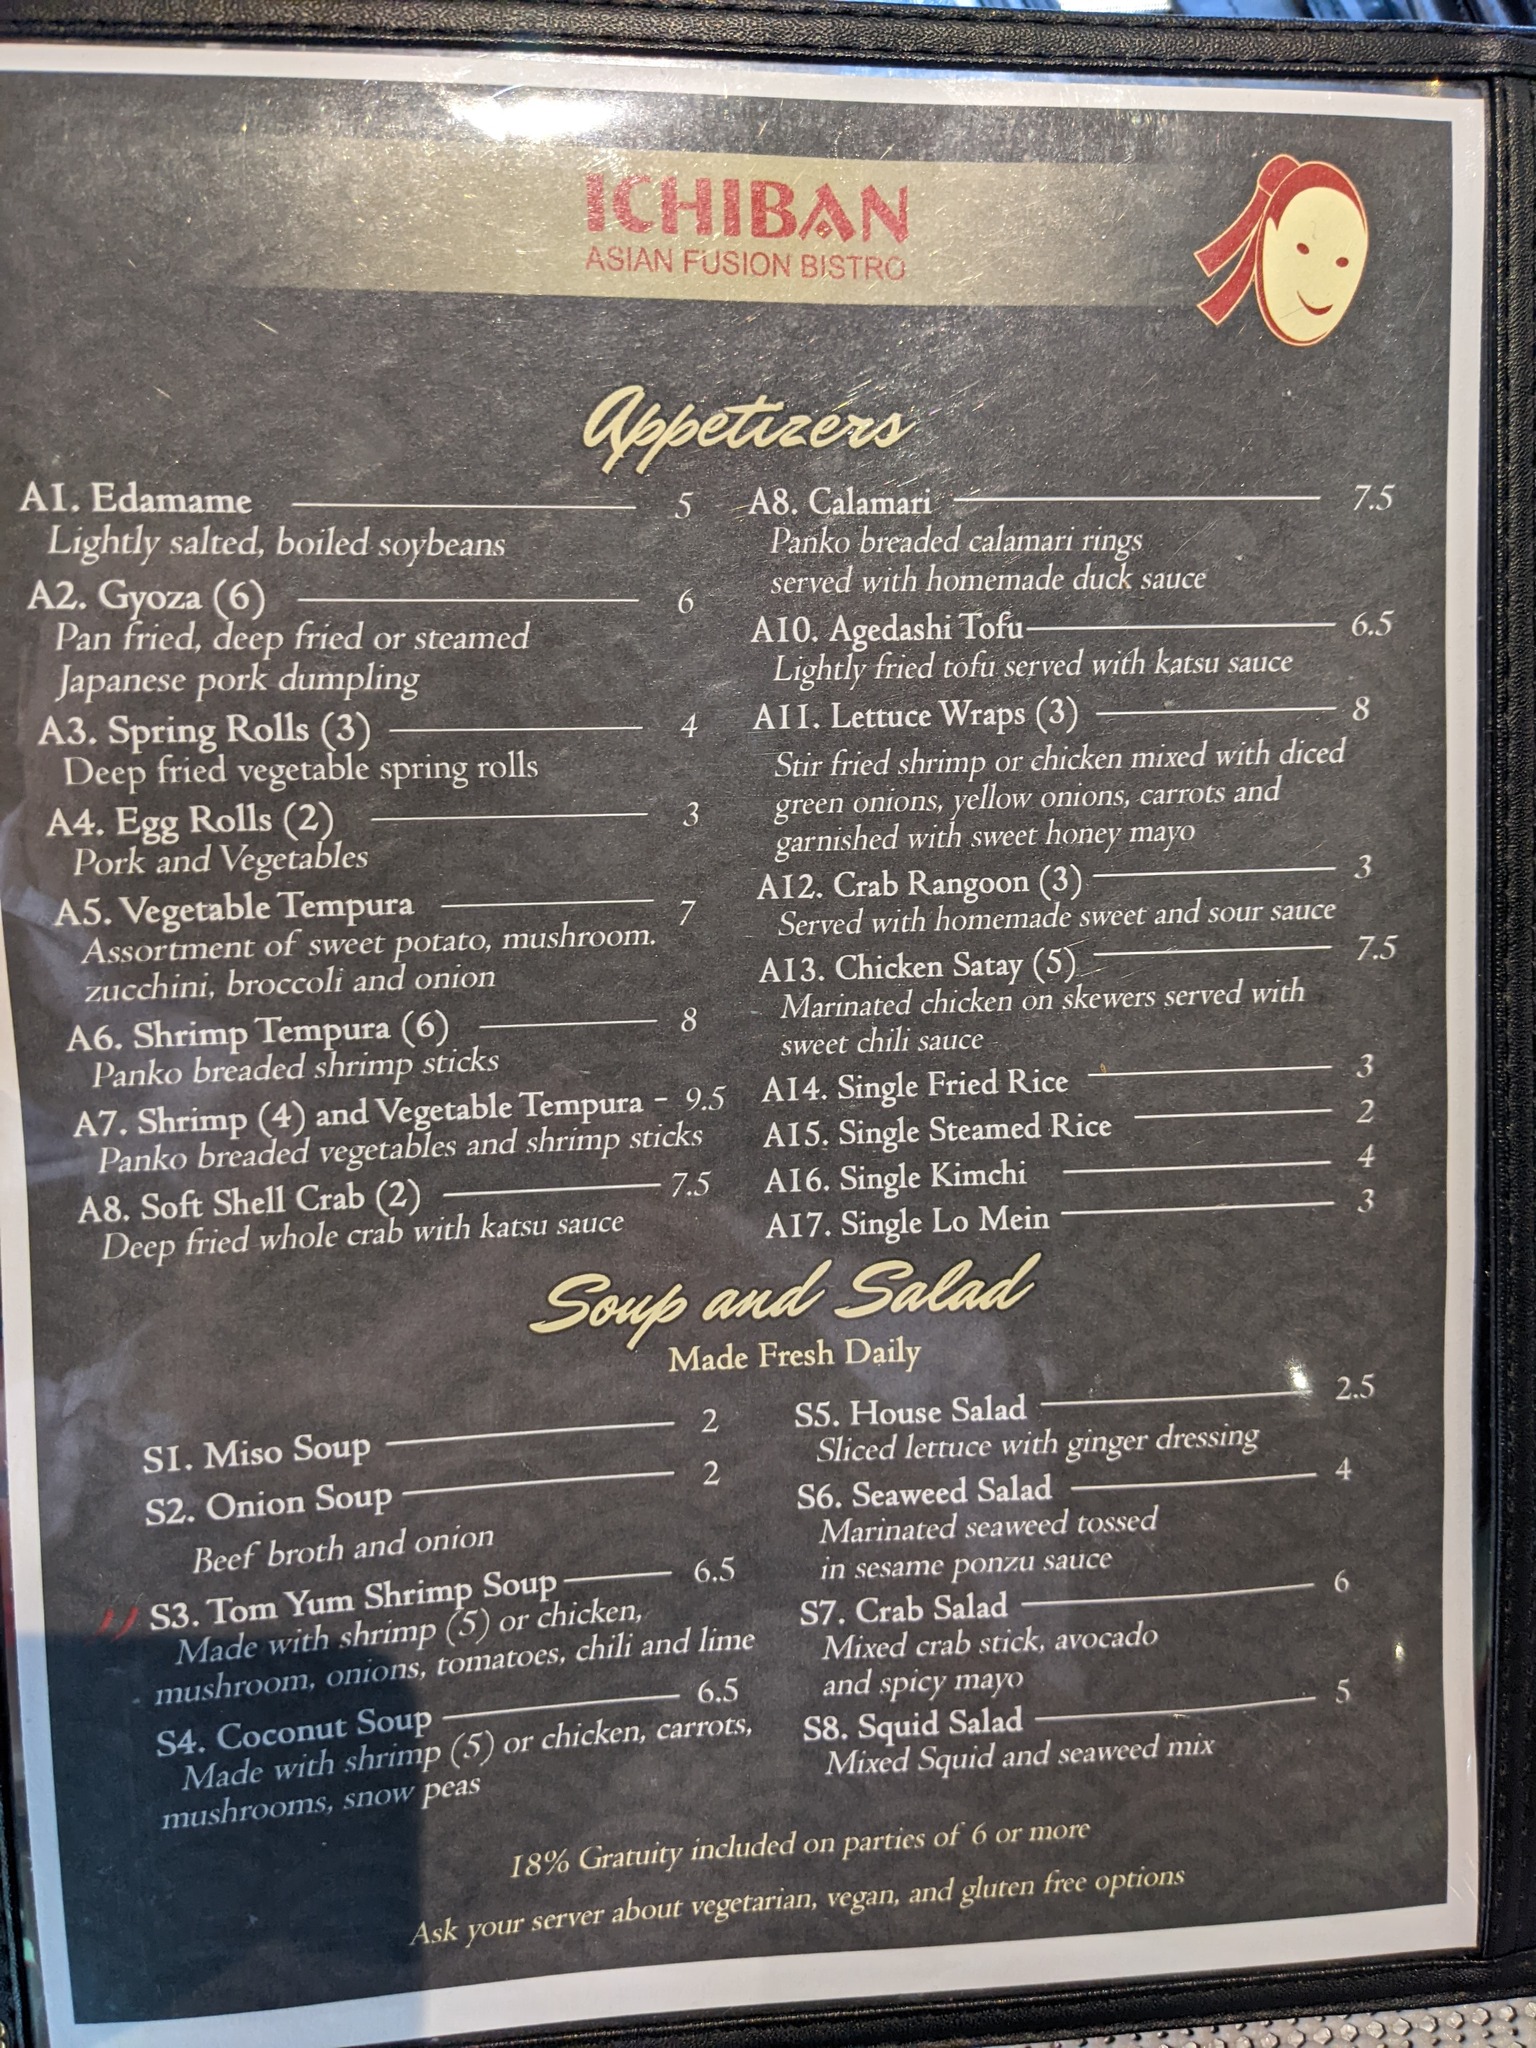 ICHIBAN
ASIAN FUSION BISTRO
Appetizers
A1. Edamame 5
Lightly salted, boiled soybeans
A2. Gyoza (6) 6
Pan fried, deep fried or steamed
Japanese pork dumpling
A3. Spring Rolls (3) 4
Deep fried vegetable spring rolls
A4. Egg Rolls (2) 3
Pork and Vegetables
A5. Vegetable Tempura 7
Assortment of sweet potato, mushroom.
zucchini, broccoli and onion
A6. Shrimp Tempura (6) 8
Panko breaded shrimp sticks
A7. Shrimp (4) and Vegetable Tempura - 9.5
Panko breaded vegetables and shrimp sticks
A8. Soft Shell Crab (2) 7.5
Deep fried whole crab with katsu sauce
A8. Calamari 7.5
Panko breaded calamari rings
served with homemade duck sauce
A10. Agedashi Tofu 6.5
Lightly fried tofu served with katsu sauce
A11. Lettuce Wraps (3) 8
Stir fried shrimp or chicken mixed with diced
green onions, yellow onions, carrots and
garnished with sweet honey mayo
A12. Crab Rangoon (3) 3
Served with homemade sweet and sour sauce
A13. Chicken Satay (5) 7.5
Marinated chicken on skewers served with
sweet chili sauce
A14. Single Fried Rice 3
A15. Single Steamed Rice 2
A16. Single Kimchi 4
A17. Single Lo Mein 3
Soup and Salad
Made Fresh Daily
S1. Miso Soup 2
S2. Onion Soup 2
Beef broth and onion
S3. Tom Yum Shrimp Soup 6.5
Made with shrimp (5) or chicken,
mushroom, onions, tomatoes, chili and lime
S4. Coconut Soup 6.5
Made with shrimp (5) or chicken, carrots,
mushrooms, snow peas
S5. House Salad 2.5
Sliced lettuce with ginger dressing
S6. Seaweed Salad 4
Marinated seaweed tossed
in sesame ponzu sauce
S7. Crab Salad 6
Mixed crab stick, avocado
and spicy mayo
S8. Squid Salad 5
Mixed Squid and seaweed mix
18% Gratuity included on parties of 6 or more
Ask your server about vegetarian, vegan, and gluten free options